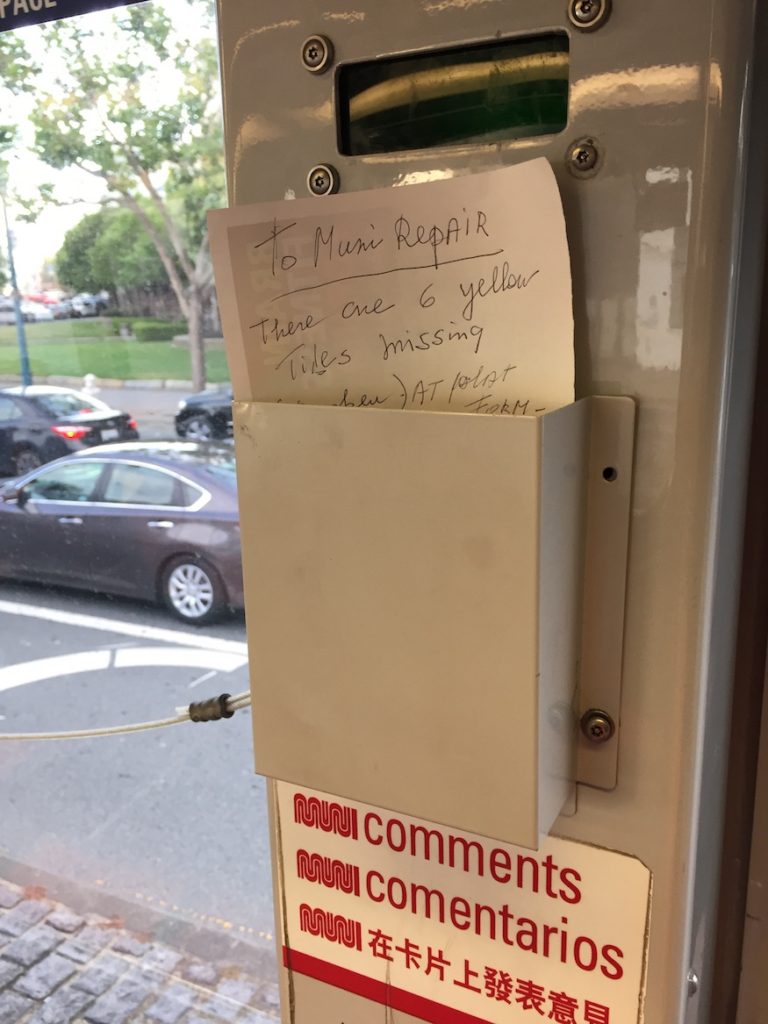 To Muni RepAIR
there are 6 yellow
Tiles missing
) AT plat
FORM-
MUNI comments
MUNI comentarios
MUNI 在卡片上發表意見